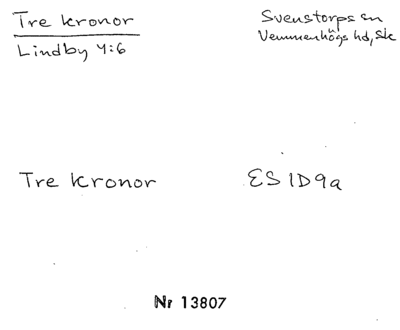 Tre kronor
Svenstorps sn
Lindby 4:6
Vemmenhögs hd, Sk
Tre kronor
ES 1D9a
Nr 13807